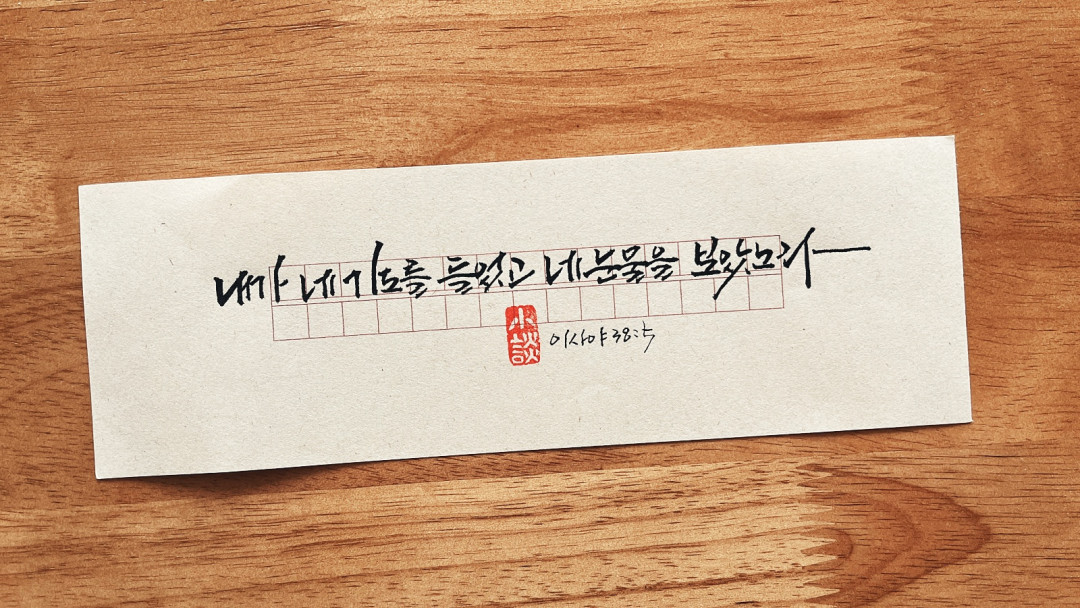 내가 네 기도를 들었고 네 눈물을 보았노라
小談
이사야 38:5